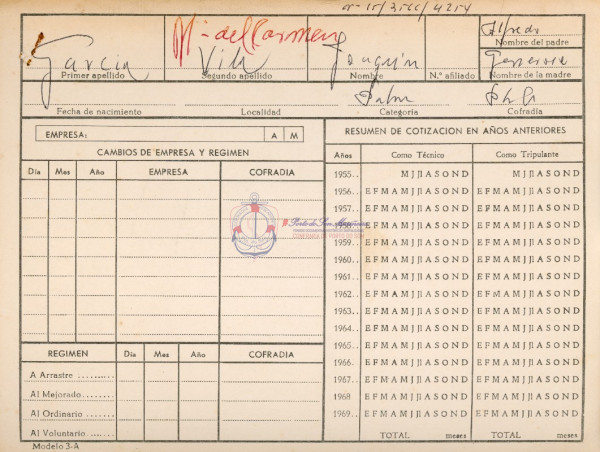 Mª del Carmen
Alfredo
Nombre del padre
García Vila Joaquín
Primer apellido Segundo apellido Nombre N.º afiliado Nombre de la madre
Fecha de nacimiento Localidad Categoría Cofradía
EMPRESA: A M
CAMBIOS DE EMPRESA Y REGIMEN
Día Mes Año EMPRESA COFRADIA
REGIMEN Día Mes Año COFRADIA
A Arrastre
Al Mejorado
Al Ordinario
Al Voluntario
Modelo 3-A
RESUMEN DE COTIZACION EN AÑOS ANTERIORES
Años Como Técnico Como Tripulante
1955.. M J JI A S O N D M J JI A S O N D
1956.. E F M A M J JI A S O N D E F M A M J JI A S O N D
1957.. E F M A M J JI A S O N D E F M A M J JI A S O N D
1958.. E F M A M J JI A S O N D E F M A M J JI A S O N D
1959.. E F M A M J JI A S O N D E F M A M J JI A S O N D
1960.. E F M A M J JI A S O N D E F M A M J JI A S O N D
1961.. E F M A M J JI A S O N D E F M A M J JI A S O N D
1962.. E F M A M J JI A S O N D E F M A M J JI A S O N D
1963.. E F M A M J JI A S O N D E F M A M J JI A S O N D
1964.. E F M A M J JI A S O N D E F M A M J JI A S O N D
1965.. E F M A M J JI A S O N D E F M A M J JI A S O N D
1966.. E F M A M J JI A S O N D E F M A M J JI A S O N D
1967.. E F M A M J JI A S O N D E F M A M J JI A S O N D
1968 E F M A M J JI A S O N D E F M A M J JI A S O N D
1969.. E F M A M J JI A S O N D E F M A M J JI A S O N D
TOTAL meses TOTAL meses